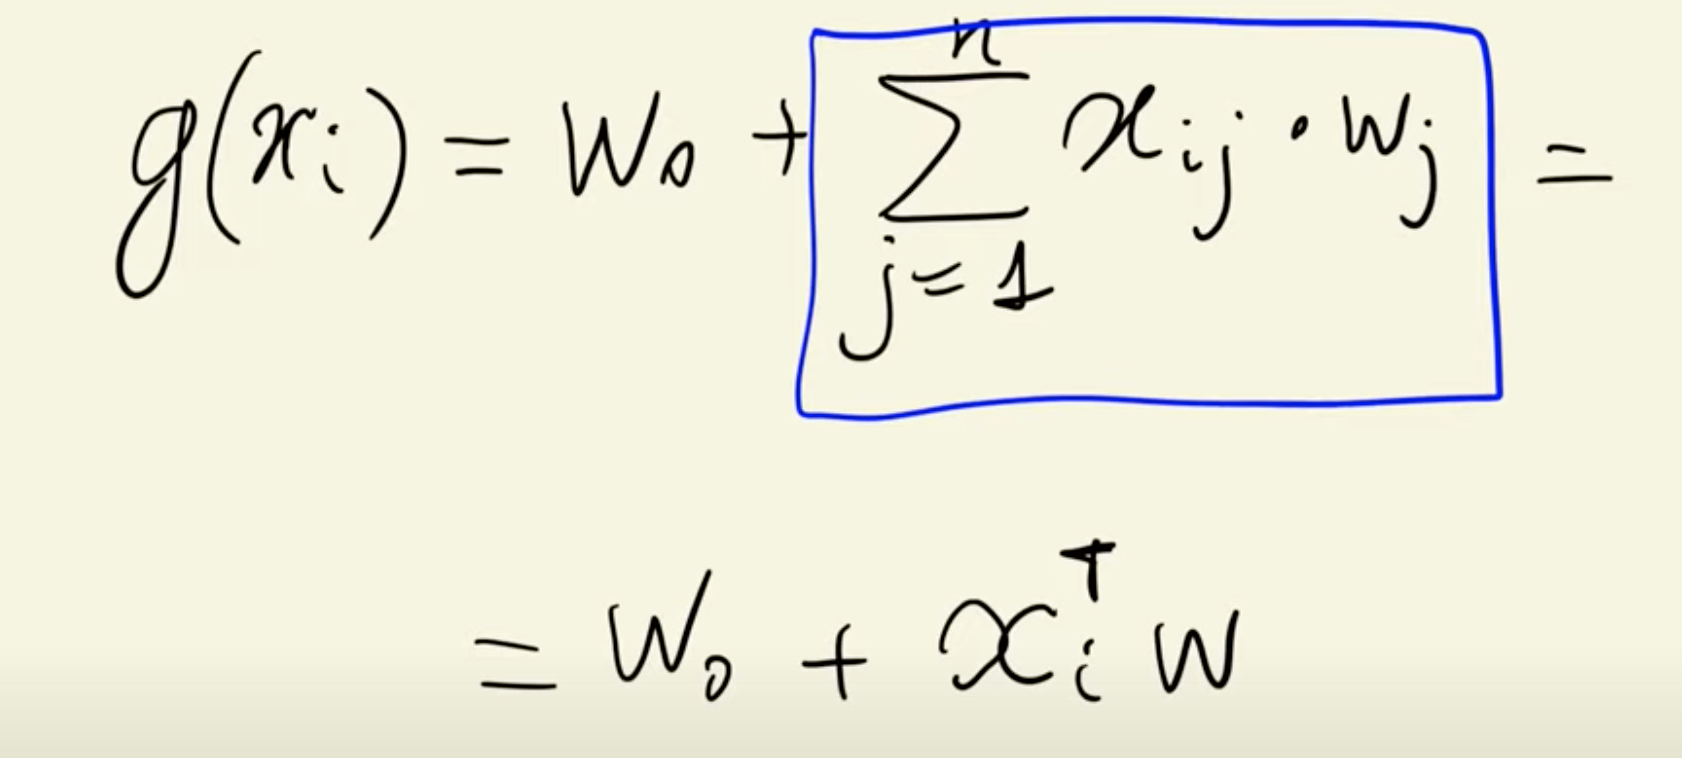 g(xᵢ) = w₀ + ∑ⱼ₌₁ⁿ xᵢⱼ · wⱼ =
= w₀ + xᵢᵀ w